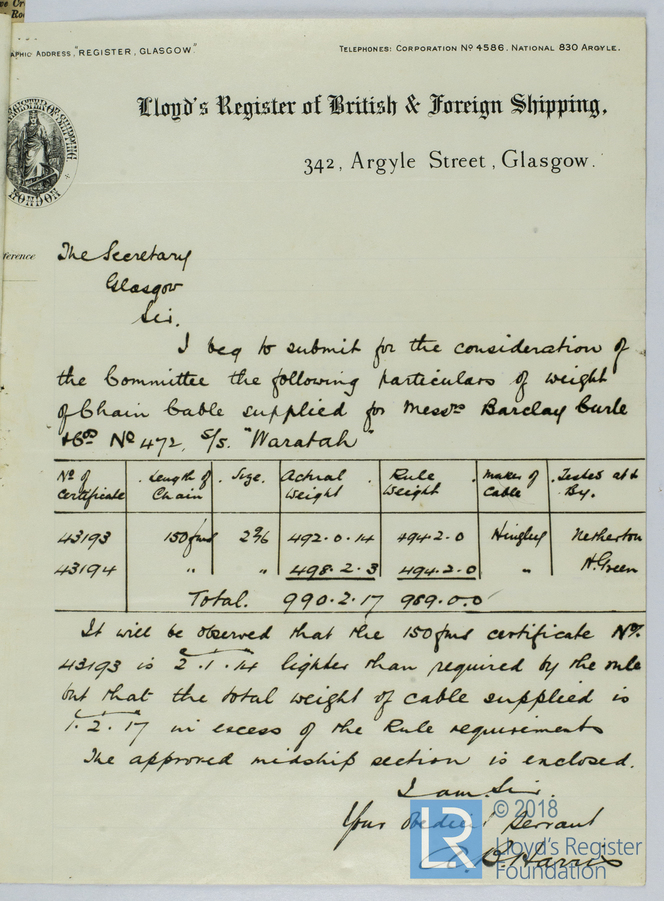 APHIC ADDRESS, "REGISTER, GLASGOW"
TELEPHONES: CORPORATION Nº 4586. NATIONAL 830 ARGYLE.
Lloyd's Register of British & Foreign Shipping,
342, Argyle Street, Glasgow.
REGISTER OF SHIPPING
LONDON
ference
The Secretary
Glasgow
Sir,
I beg to submit for the consideration of
the Committee the following particulars of weight
of Chain Cable supplied for Messrs Barclay Curle
& Co Nº 472. S/S. "Waratah"
Nº of certificate Length of Chain Size. Actual Weight Rule Weight Makers of Cable Tested at & By.
43193 150 fms 2 9/16 492.0.14 494.2.0 Hingley Netherton
43194 " " 498.2.3 494.2.0 " H. Green
Total. 990.2.17 989.0.0
It will be observed that the 150 fms certificate Nº
43193 is 2.1.14 lighter than required by the rule
but that the total weight of cable supplied is
1.2.17 in excess of the Rule requirements
The approved midship section is enclosed.
I am Sir.
Your Obedient Servant
B. Harris
LR © 2018
Lloyd's Register
Foundation